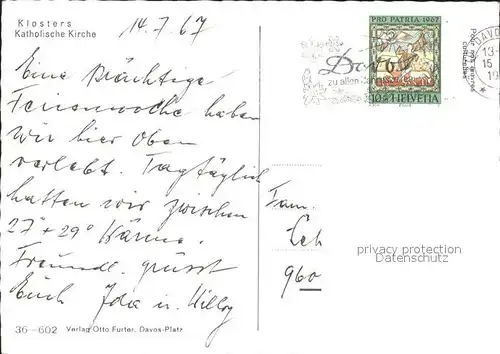 Klosters
Katholische Kirche
14.7.67
Eine Prächtige
Ferienwoche haben
wir hier Oben
verlebt. Tagtäglich
hatten wir zwischen
27° + 29° Wärme.
Freundl. grüsst
Euch Ida u. Willy
36-602 Verlag Otto Furter, Davos-Platz
PRO PATRIA 1967
Davos
zu allen
10 HELVETIA
DAVOS
13-
15
19
Fam.
960
privacy protection
Datenschutz